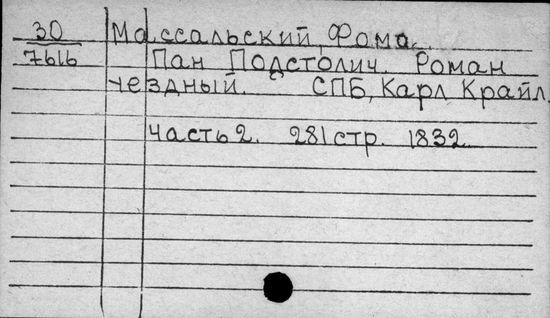 30 Массальский Фома.
7616 Пан Подстолич. Роман
чездный. СПБ, Карл Крайл.
часть 2. 281 стр. 1832.